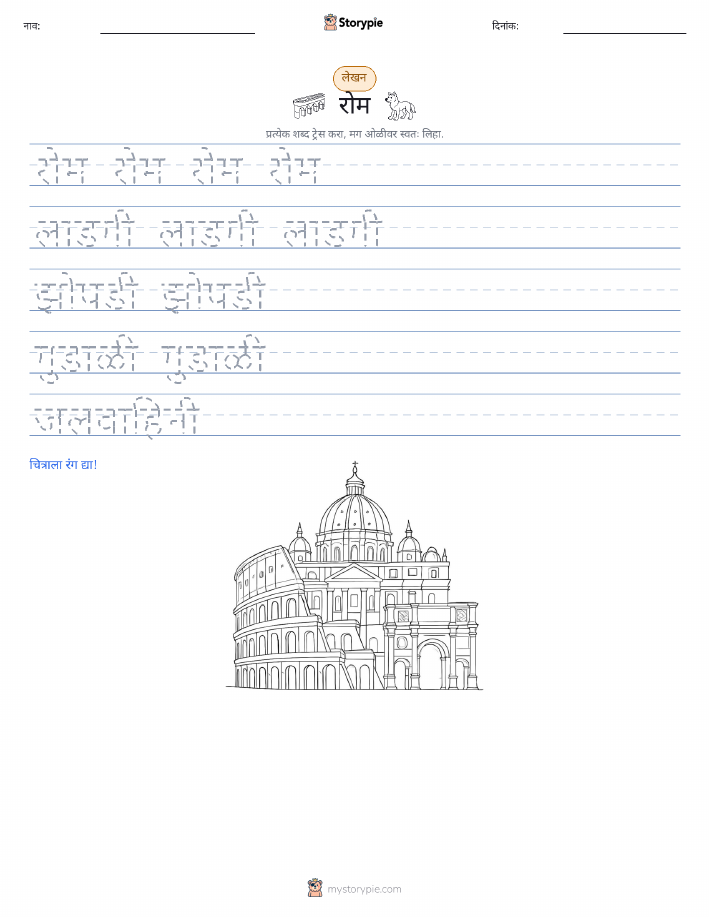 नाव:
Storypie
दिनांक:
लेखन
रोम
प्रत्येक शब्द ट्रेस करा, मग ओळीवर स्वतः लिहा.
रोम रोम रोम रोम
लांडगी लांडगी लांडगी
झोपडी झोपडी
गुडाळी गुडाळी
जलवाहिनी
चित्राला रंग द्या!
mystorypie.com